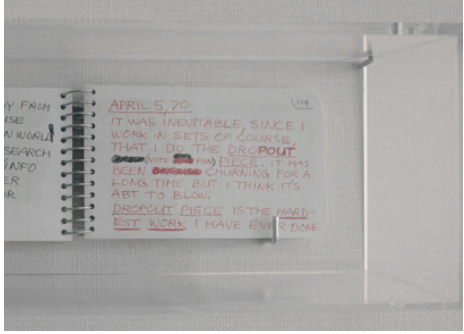 Y FROM
USE
N WORLD
SEARCH
INFO
ER
OR
APRIL 5, 70
IT WAS INEVITABLE, SINCE I
WORK IN SETS OF COURSE
THAT I DO THE DROPOUT
(NOTE PUN) PIECE. IT HAS
BEEN CHURNING FOR A
LONG TIME BUT I THINK IT'S
ABT TO BLOW.
DROPOUT PIECE IS THE HARD-
EST WORK I HAVE EVER DONE